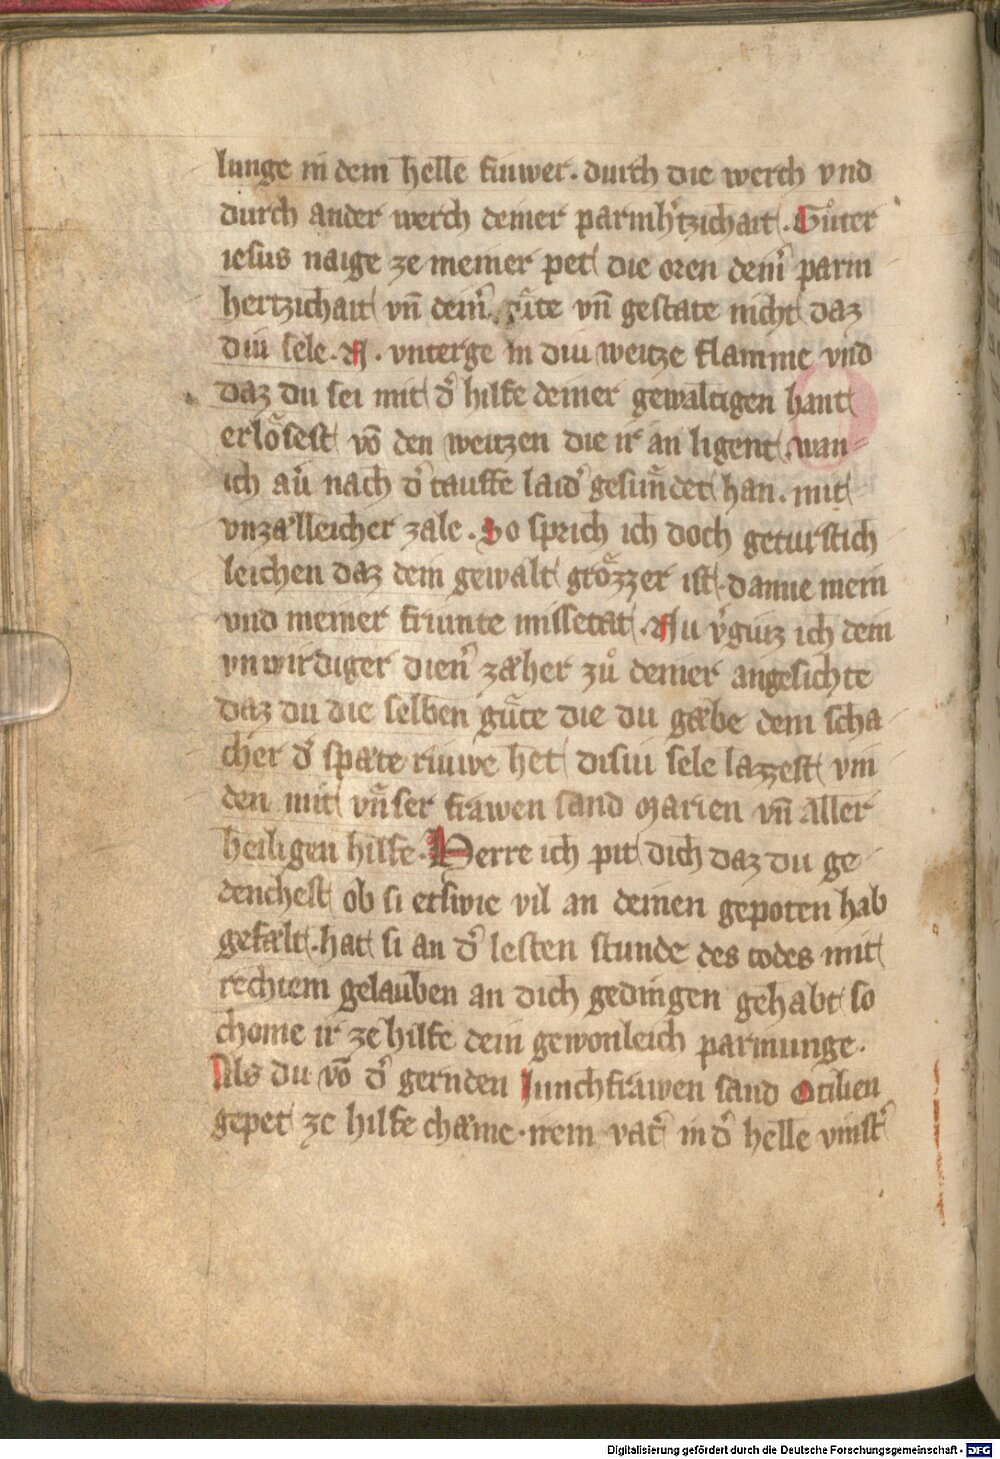 lunge in dem helle fiuwer. durch die werch vnd
durch ander werch deiner parmh̓tzichait. Gůter
iesus naige ze meiner pet die oren dein̓ parm
hertzichait vn̄ dein̓ guͤte vn̄ gestate nicht daz
diu sele. N. vnterge in diu weitze flamme vnd
daz du sei mit d̓ hilfe deiner gewaltigen hant
erloͤsest vō den weitzen die ir an ligent. wan
ich au̓ nach d̓ tauffe laid̓ gesuͤndet han. mit
vnzaͤlleicher zale. So sprich ich doch geturstich
leichen daz dein gewalt groͤzzer ist. danne mein
vnd meiner friunte missetat. Nu v̓giuz ich dein
vnwirdiger dien̓ zaͤher zů deiner angesichte
daz du die selben guͤte die du gaͤbe dem scha
cher d̓ spaͤte riuwe het disiu sele lazzest vin
den mit vnser frawen sand Marien vn̄ aller
heiligen hilfe. Herre ich pit dich daz du ge
denchest ob si etswie vil an deinen gepoten hab
gefaͤlt. hat si an d̓ lesten stunde des todes mit
rechtem gelauben an dich gedingen gehabt so
chome ir ze hilfe dein gewonleich parmunge.
Als du vō d̓ gernden Junchfrawen sand Otilien
gepet ze hilfe chaͤme. irem vat̓ in d̓ helle vinst̓
Digitalisierung gefördert durch die Deutsche Forschungsgemeinschaft - DFG